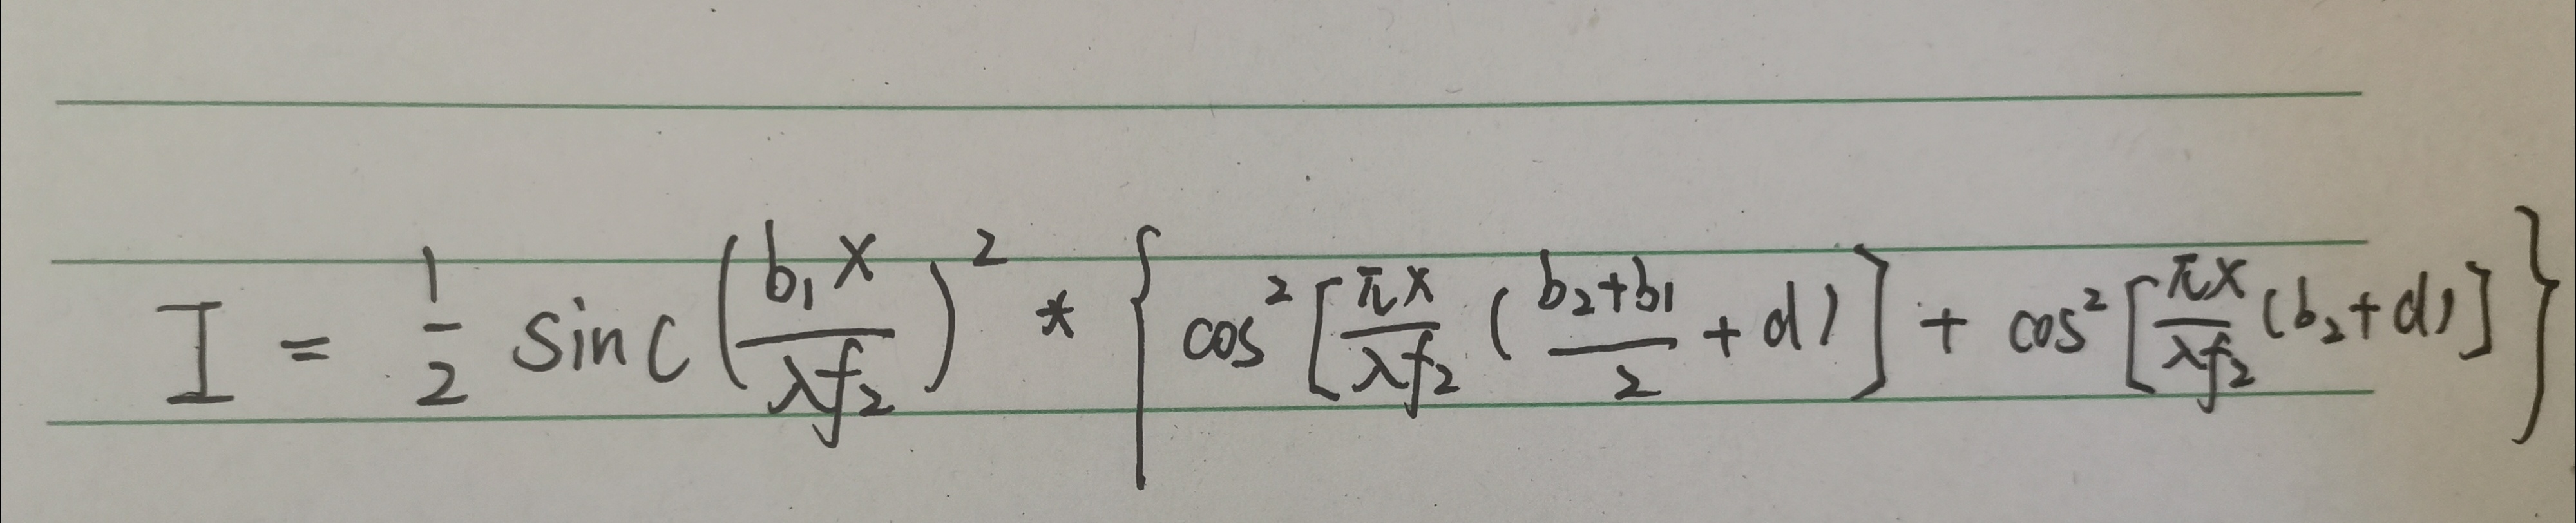 I = \frac{1}{2} sinc(\frac{b_1 x}{λf_2})^2 * {cos^2[\frac{πx}{λf_2}(\frac{b_2+b_1}{2}+d)] + cos^2[\frac{πx}{λf_2}(b_2+d)]}